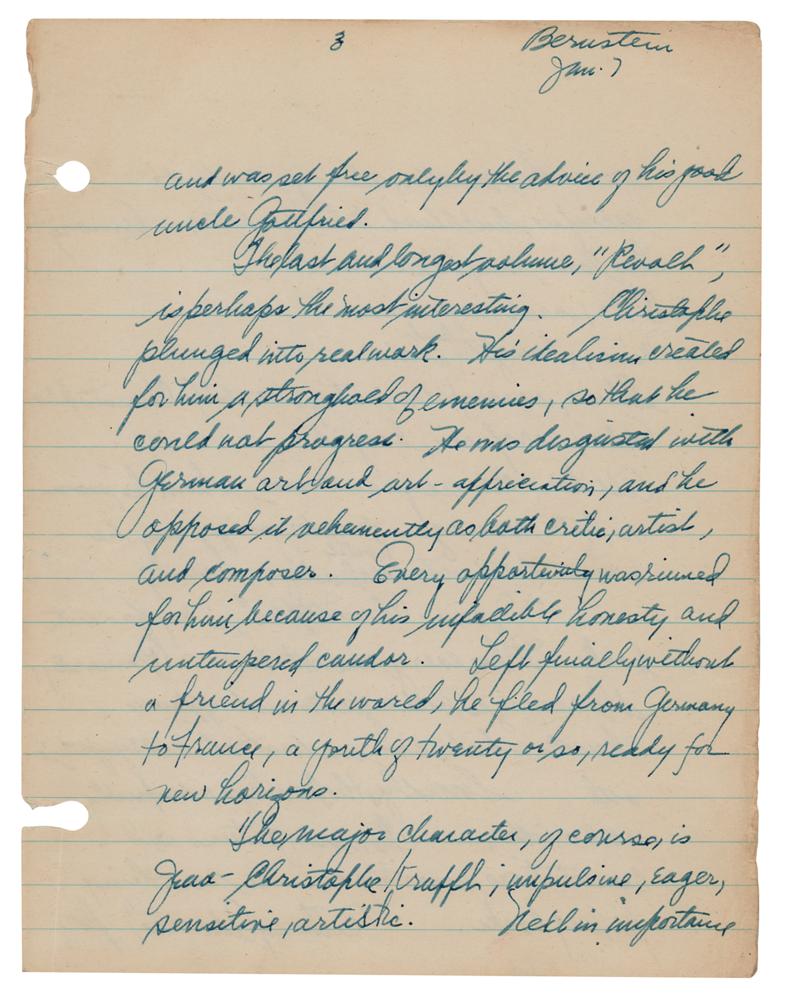 3
Bernstein
Jan. 7
and was set free only by the advice of his good
uncle Gottfried.
The last and longest volume, "Revolt",
is perhaps the most interesting. Christophe
plunged into real work. His idealism created
for him a stronghold of enemies, so that he
could not progress. He was disgusted with
German art and art-appreciation, and he
opposed it vehemently as both critic, artist,
and composer. Every opportunity was ruined
for him because of his infallible honesty and
untempered candor. Left finally without
a friend in the world, he fled from Germany
to France, a youth of twenty or so, ready for
new horizons.
The major character, of course, is
Jean-Christophe Krafft; impulsive, eager,
sensitive, artistic. Next in importance